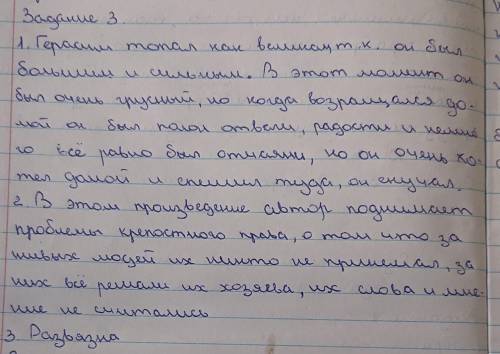 Задание 3
1. Герасим топал как великан т.к. он был
большим и сильным. В этот момент он
был очень грусный, но когда возращался до-
мой он был полон отваги, радости и немно
го всё равно был отчаяни, но он очень хо-
тел домой и спешил туда, он скучал.
2. В этом произведение автор поднимает
проблемы крепостного права, о том что за
живых людей их никто не принемал, за
них всё решали их хозяева, их слова и мне-
ние не считались
3. Развязка